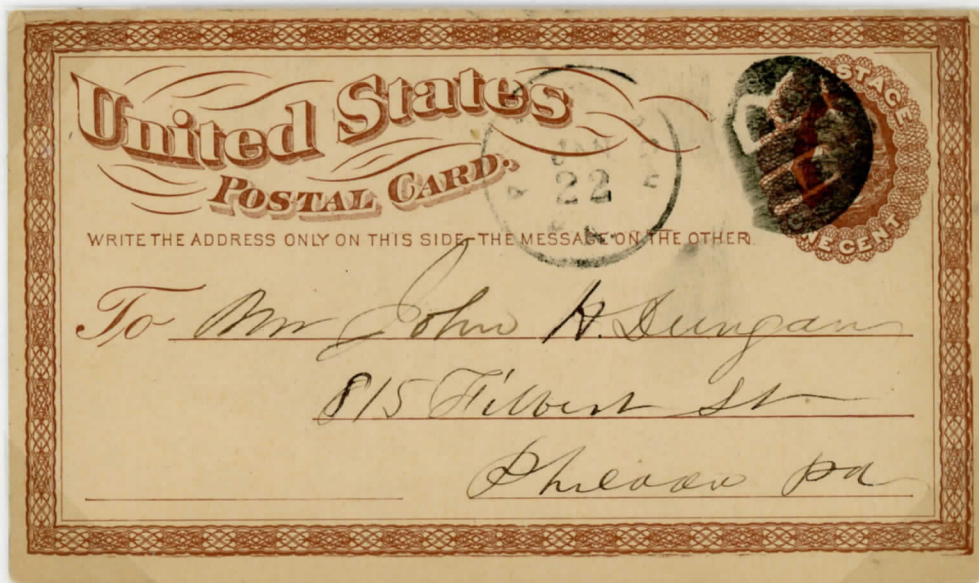 United States
POSTAL CARD.
JAN
22
POSTAGE
ONE CENT
WRITE THE ADDRESS ONLY ON THIS SIDE-THE MESSAGE ON THE OTHER
To Mr John H. Dungan
815 Filbert St
Philada Pa